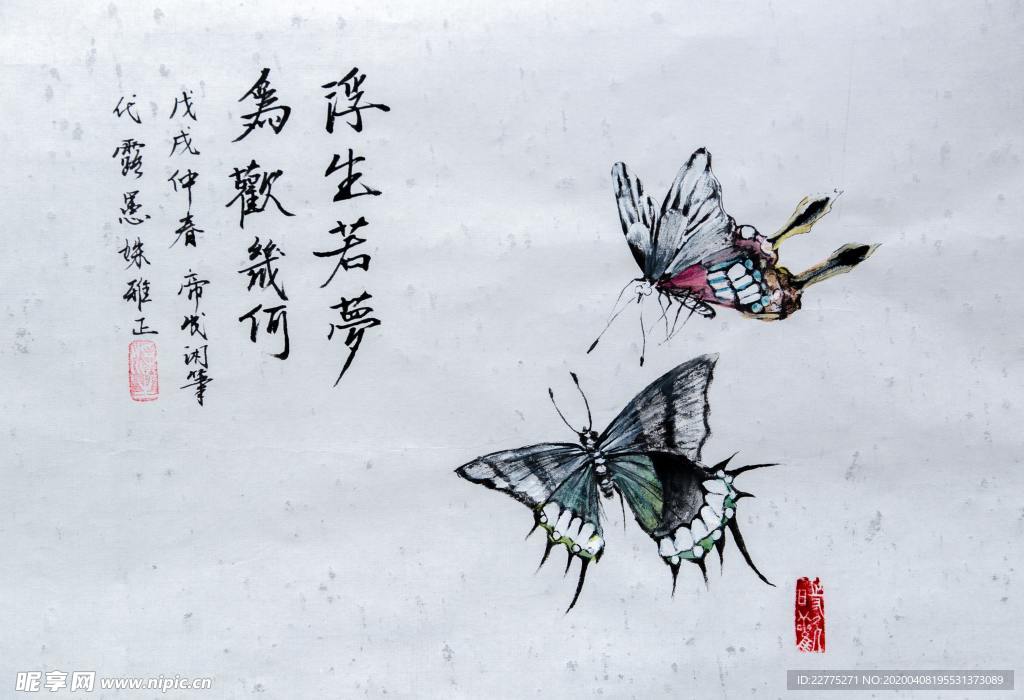 浮生若夢
爲歡幾何
戊戌仲春
代霞愚姝雅正
昵享网 www.nipic.cn
ID:22775271 NO:20200408195531373089